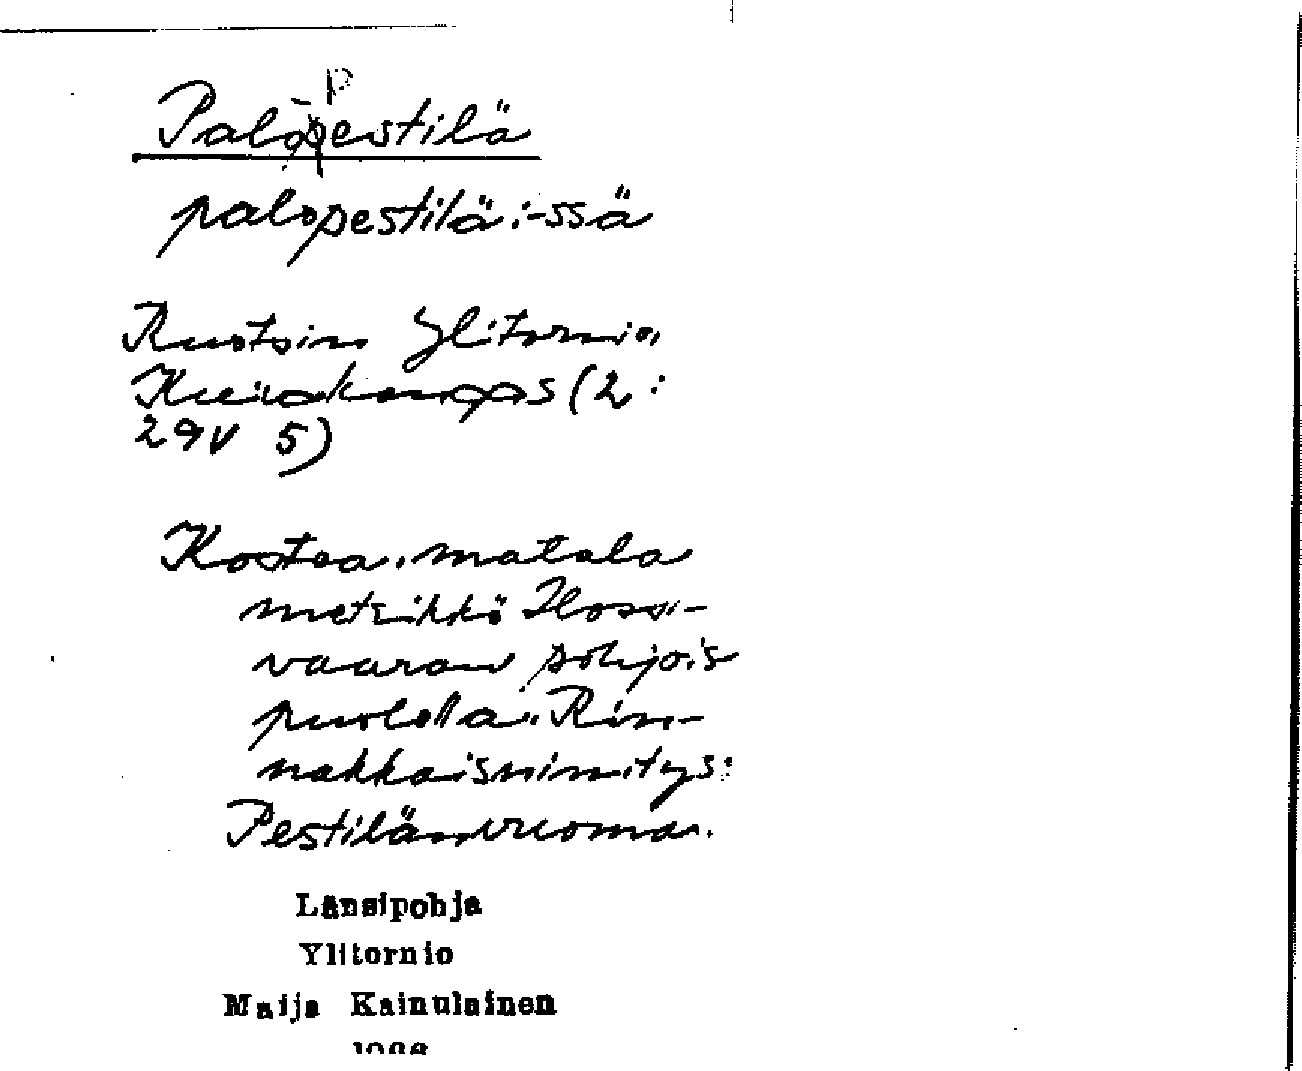 Palopestilä
palopestilä:-ssä
Ruotsin Ylitornio,
Kuivakangas (2:
29V 5)
Kostea, matala
metsikkö Iloso-
vaaran pohjois
puolella. Rin-
nakkaisnimitys:
Pestilänvuoma.
Länsipohja
Ylitornio
Maija Kainulainen